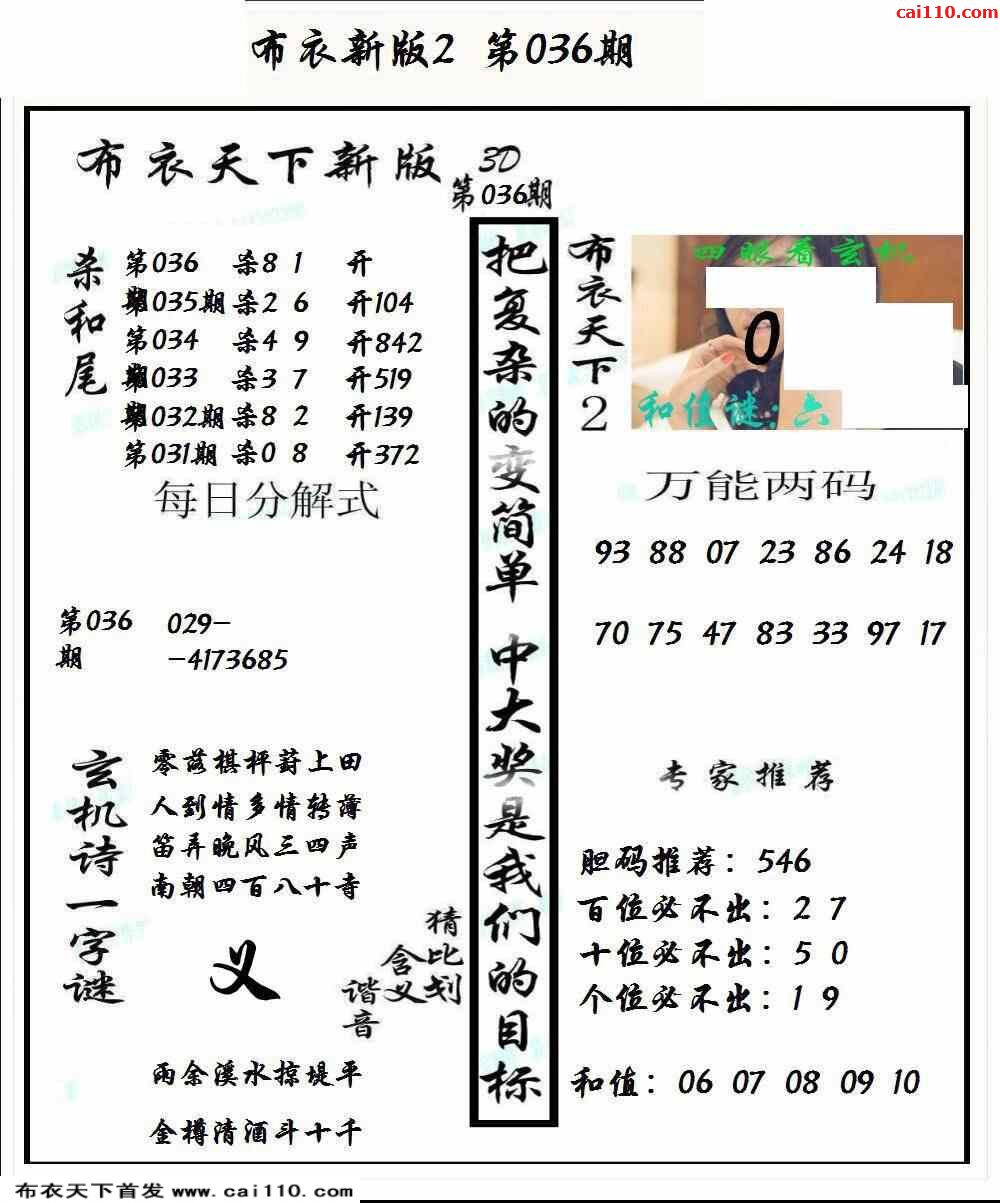 cai110.com
布衣新版2 第036期
布衣天下新版 3D
第036期
杀和尾
第036期 杀8 1 开
第035期 杀2 6 开104
第034期 杀4 9 开842
第033期 杀3 7 开519
第032期 杀8 2 开139
第031期 杀0 8 开372
每日分解式
第036期 029-
-4173685
玄机诗一字谜
零落棋枰葑上田
人到情多情转薄
笛弄晚风三四声
南朝四百八十寺
义
猜比划
含义
谐音
雨余溪水掠堤平
金樽清酒斗十千
把复杂的变简单 中大奖是我们的目标
布衣天下2
四眼看玄机
0
和值谜:六
万能两码
93 88 07 23 86 24 18
70 75 47 83 33 97 17
专家推荐
胆码推荐：546
百位必不出：2 7
十位必不出：5 0
个位必不出：1 9
和值：06 07 08 09 10
布衣天下首发 www.cai110.com